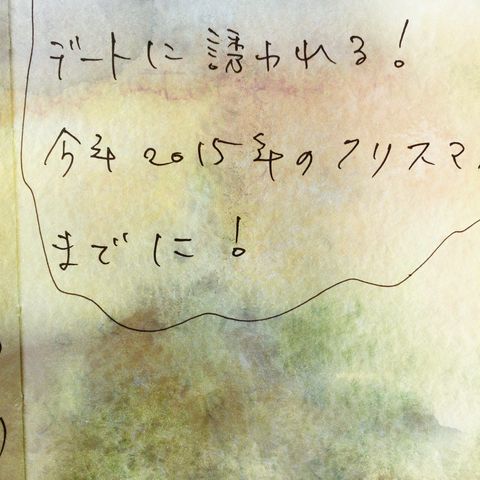 デートに誘われる!
今年2015年のクリスマ
までに!